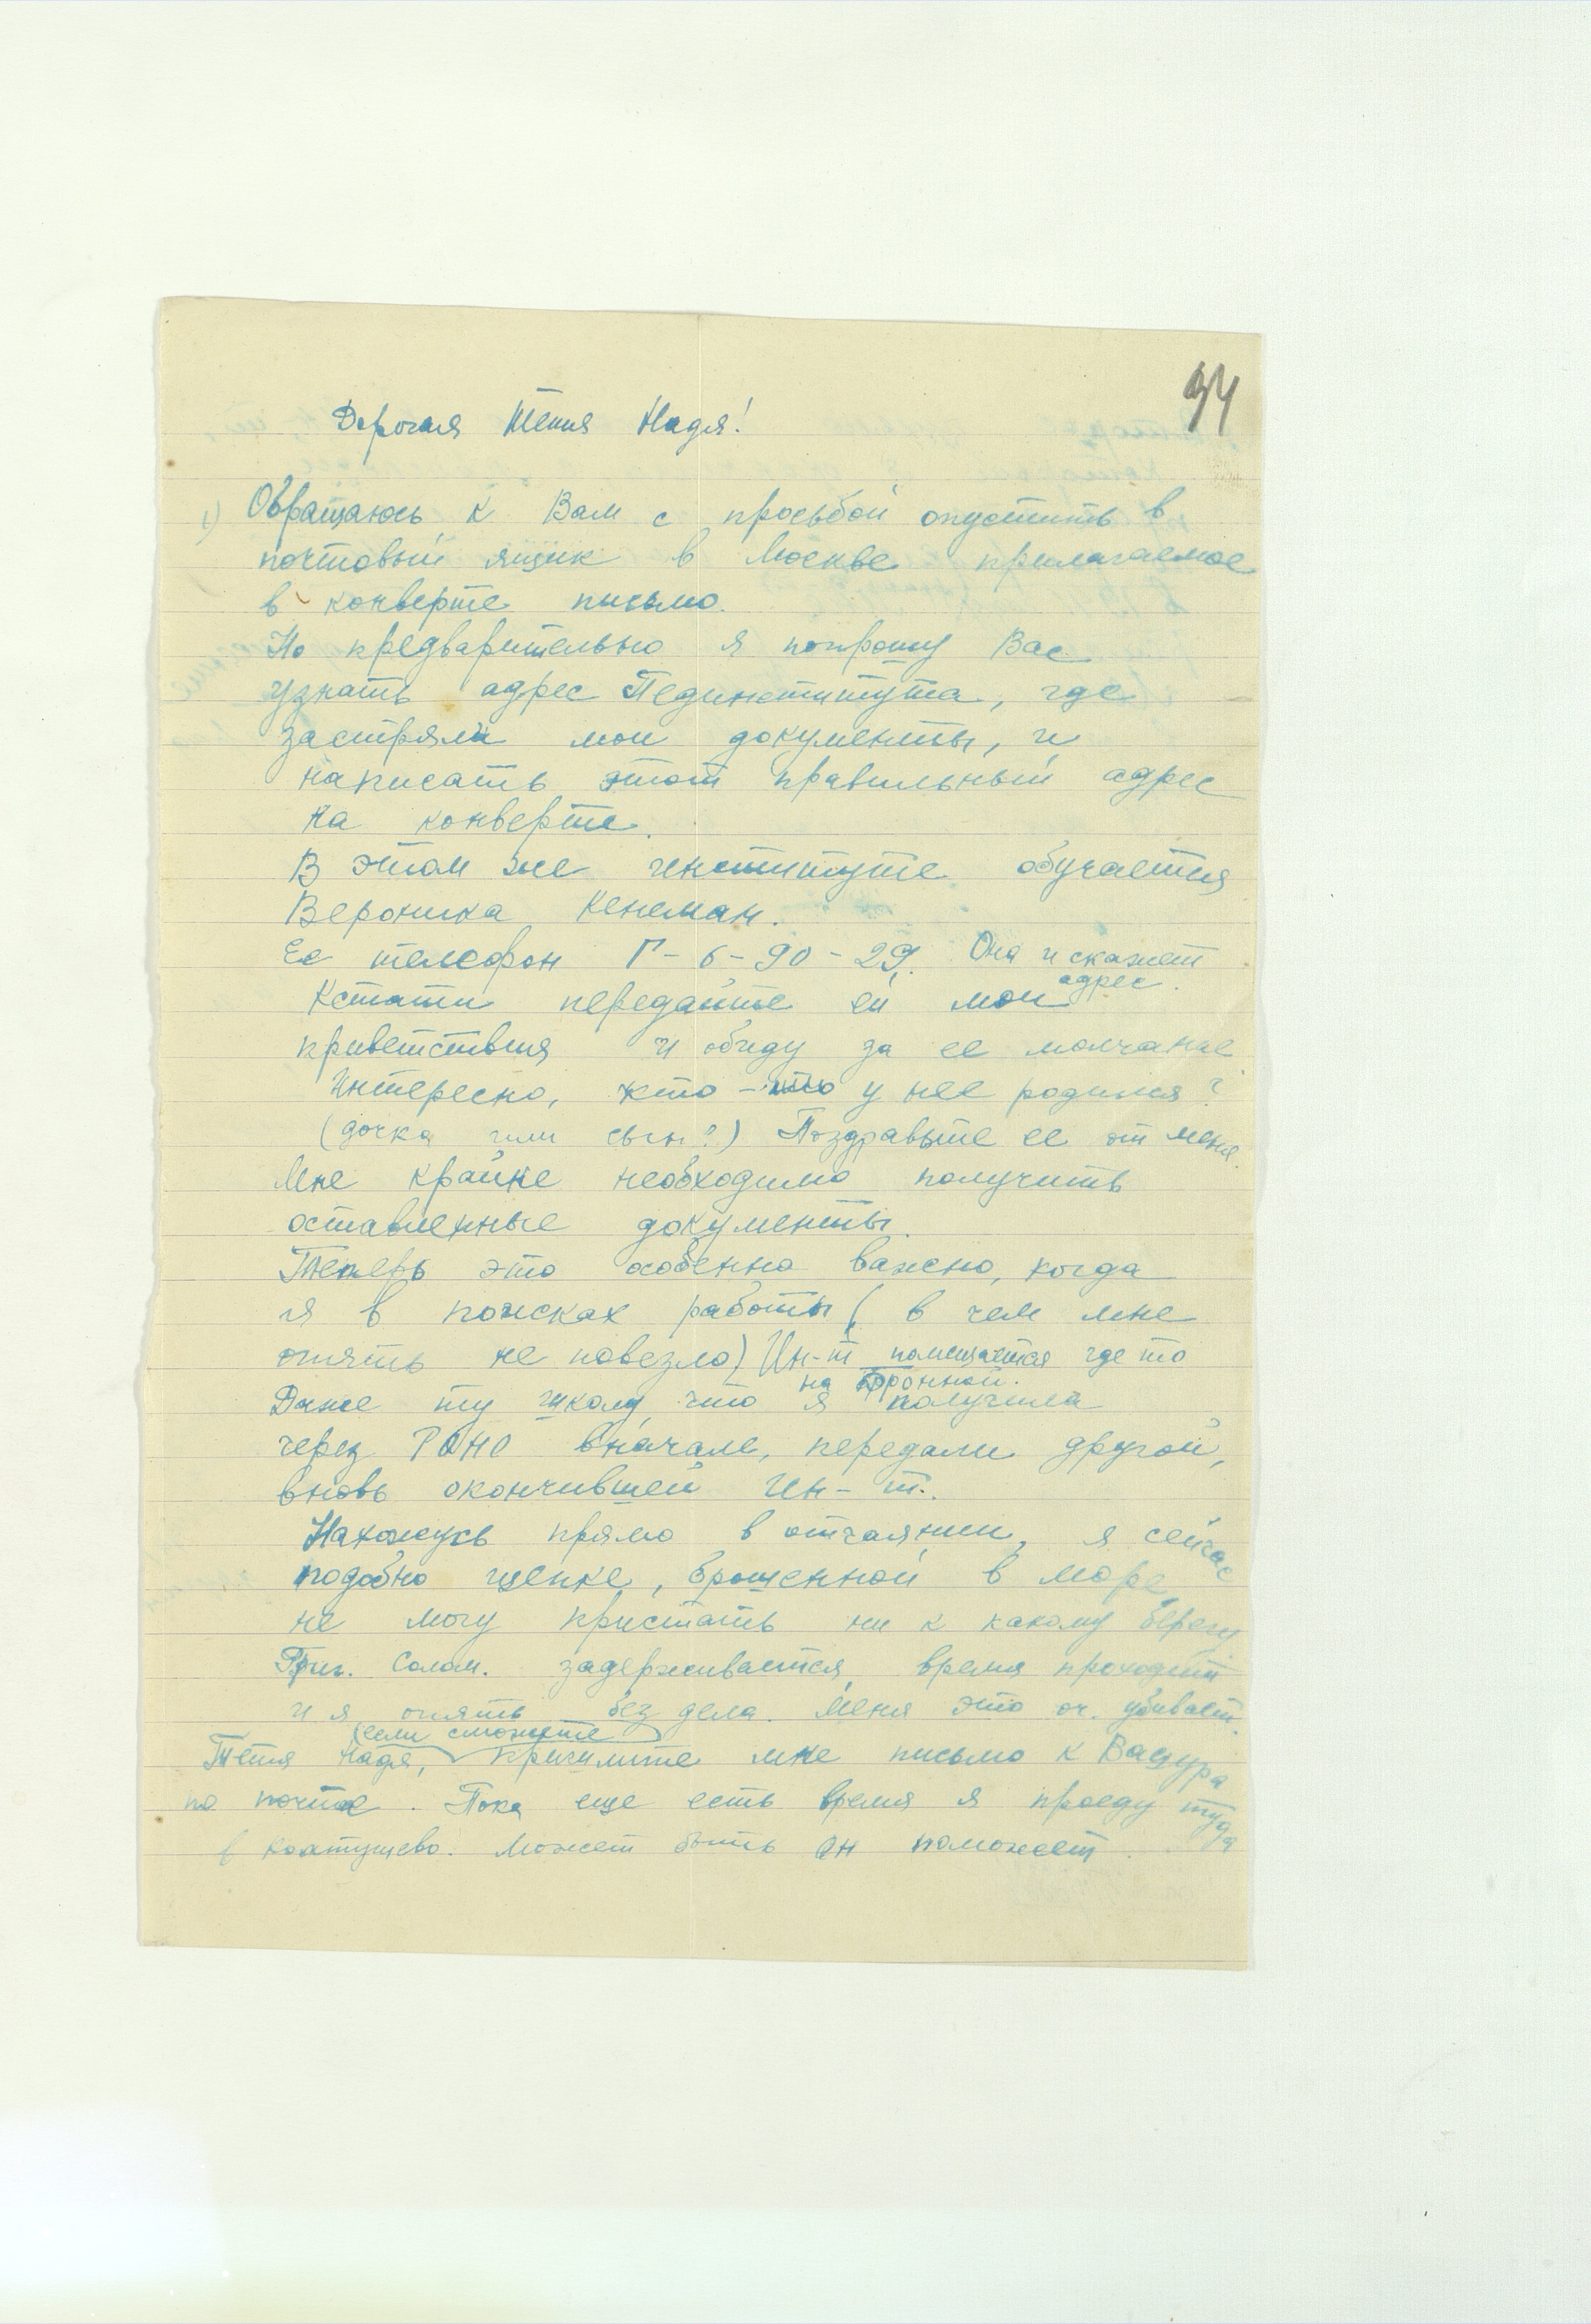 94
Дорогая тётя Надя!
1) Обращаюсь к Вам с просьбой опустить в
почтовый ящик в Москве прилагаемое
в конверте письмо.
Но предварительно я попрошу Вас
узнать адрес Пединститута, где
застряли мои документы, и
написать этот правильный адрес
на конверте.
В этом же институте обучается
Вероника Кенеман.
Ее телефон Г-6-90-29. Она и скажет
адрес.
Кстати передайте ей мои
приветствия и обиду за ее молчание
Интересно, кто - у нее родился?
(дочка или сын?) Поздравьте ее от меня.
Мне крайне необходимо получить
оставленные документы.
Теперь это особенно важно, когда
я в поисках работы (в чем мне
опять не повезло) Ин-т помещается где то
на Бронной.
Даже ту школу, что я получила
через РОНО вначале, передали другой,
вновь окончившей Ин-т.
Нахожусь прямо в отчаянии, я сейчас
подобно щепке, брошенной в море
не могу пристать ни к какому берегу
Григ. Солом. задерживается, время проходит
и я опять без дела. Меня это оч. убивает.
(если сможете)
Тётя Надя, пришлите мне письмо к Вацура
по почте. Пока еще есть время я проеду туда
в Колтушево. Может быть он поможет